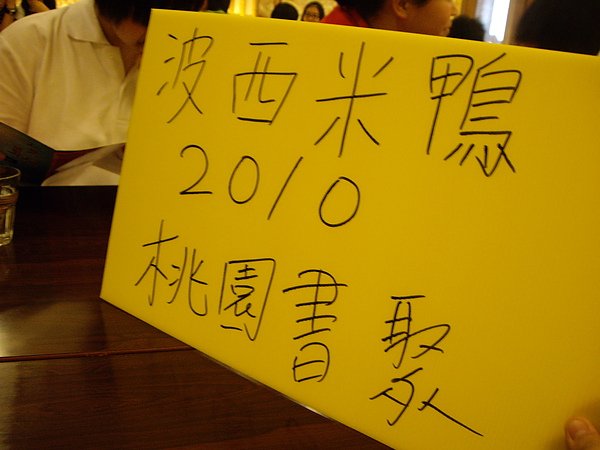 波西米鴨
2010
桃園書聚